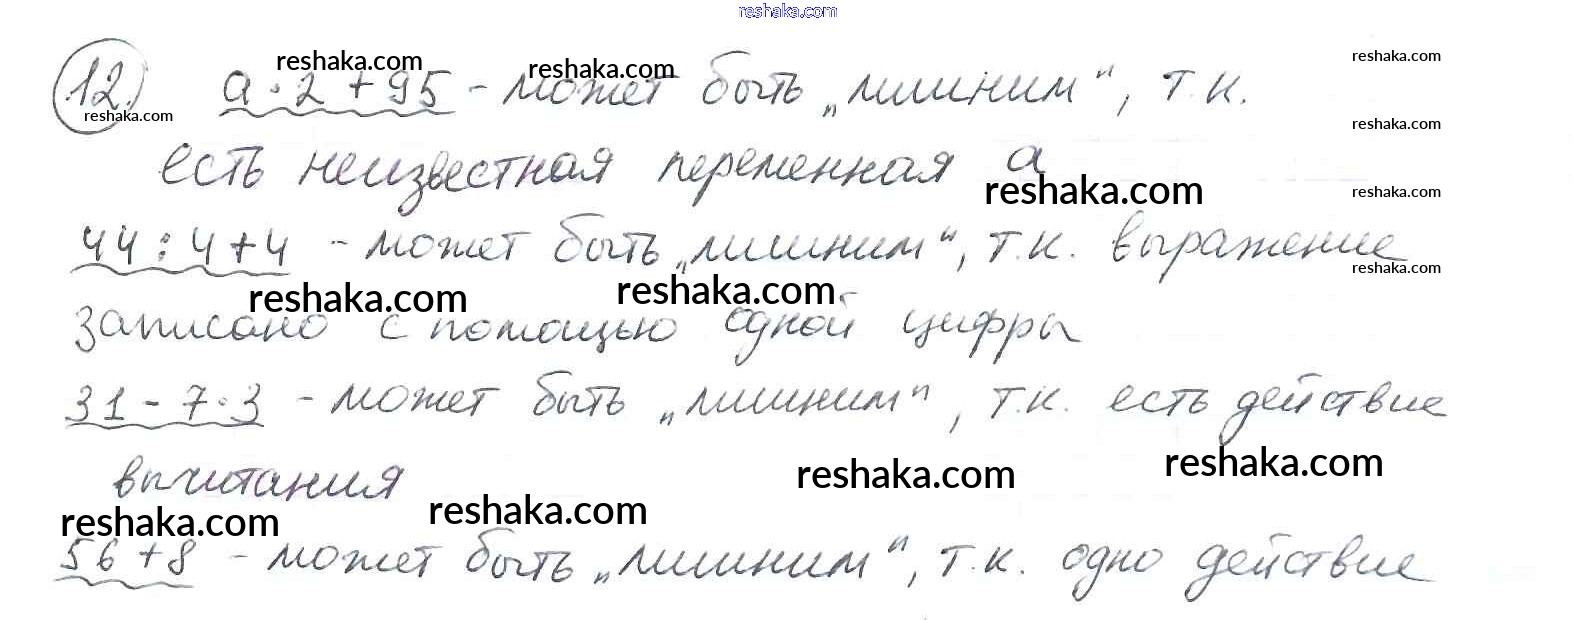 reshaka.com
12. a · 2 + 95 - может быть „лишним“, т.к.
есть неизвестная переменная а
44 : 4 + 4 - может быть „лишним“, т.к. выражение
записано с помощью одной цифры
31 - 7 · 3 - может быть „лишним“, т.к. есть действие
вычитания
56 + 8 - может быть „лишним“, т.к. одно действие
reshaka.com
reshaka.com
reshaka.com
reshaka.com
reshaka.com
reshaka.com
reshaka.com
reshaka.com
reshaka.com
reshaka.com
reshaka.com
reshaka.com
reshaka.com
reshaka.com